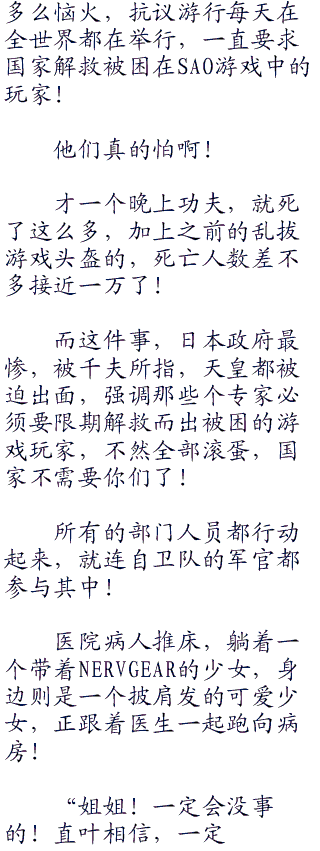 多么恼火，抗议游行每天在
全世界都在举行，一直要求
国家解救被困在SAO游戏中的
玩家！
他们真的怕啊！
才一个晚上功夫，就死
了这么多，加上之前的乱拔
游戏头盔的，死亡人数差不
多接近一万了！
而这件事，日本政府最
惨，被千夫所指，天皇都被
迫出面，强调那些个专家必
须要限期解救而出被困的游
戏玩家，不然全部滚蛋，国
家不需要你们了！
所有的部门人员都行动
起来，就连自卫队的军官都
参与其中！
医院病人推床，躺着一
个带着NERVGEAR的少女，身
边则是一个披肩发的可爱少
女，正跟着医生一起跑向病
房！
“姐姐！一定会没事
的！直叶相信，一定